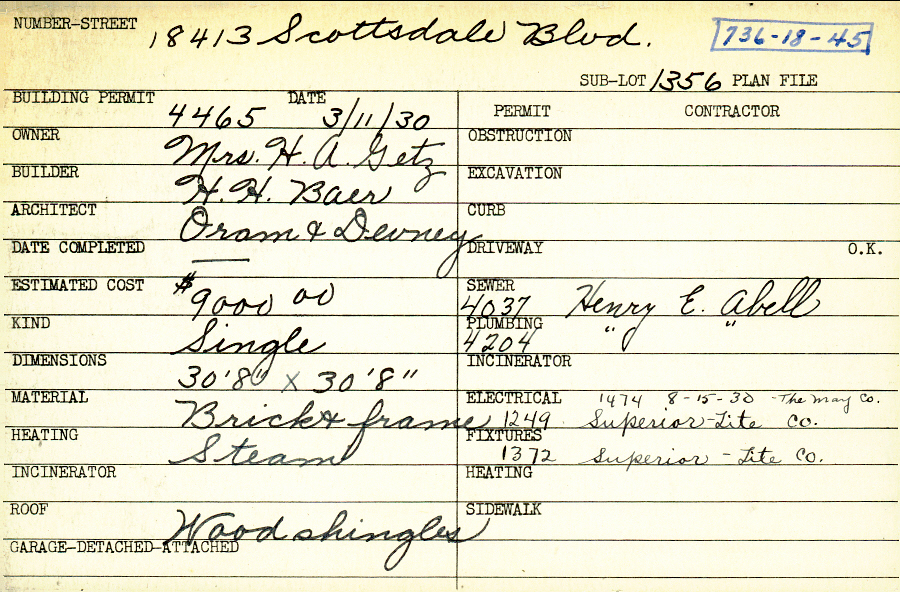 NUMBER-STREET 18413 Scottsdale Blvd. 736-18-45
SUB-LOT 1356 PLAN FILE
BUILDING PERMIT 4465 DATE 3/11/30
PERMIT CONTRACTOR
OWNER Mrs. H. A. Getz
OBSTRUCTION
BUILDER H. H. Baer
EXCAVATION
ARCHITECT Oram & Devney
CURB
DATE COMPLETED —
DRIVEWAY O.K.
ESTIMATED COST $9000 00
SEWER 4037 Henry E. Abell
KIND Single
PLUMBING 4204 " "
DIMENSIONS 30'8" x 30'8"
INCINERATOR
MATERIAL Brick & frame
ELECTRICAL 1474 8-15-30 - The May Co.
1249 Superior-Lite Co.
HEATING Steam
FIXTURES 1372 Superior-Lite Co.
INCINERATOR
HEATING
ROOF Wood shingles
SIDEWALK
GARAGE-DETACHED-ATTACHED